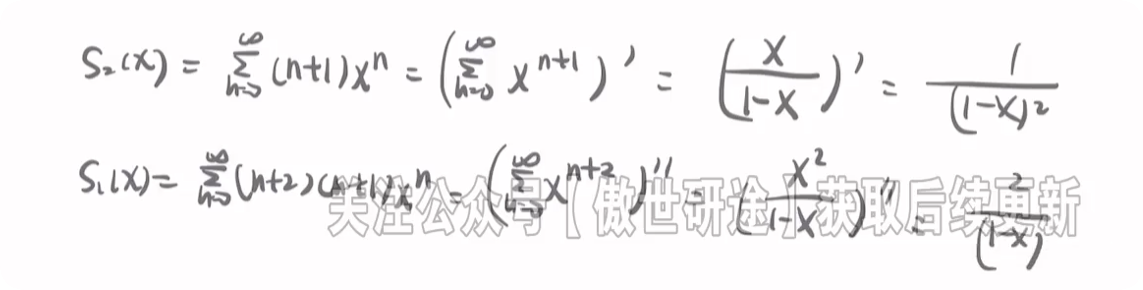 S₂(x) = ∑_{n=0}^{∞} (n+1)xⁿ = (∑_{n=0}^{∞} x^{n+1})' = (x/(1-x))' = 1/(1-x)²
S₁(x) = ∑_{n=0}^{∞} (n+2)(n+1)xⁿ = (∑_{n=0}^{∞} x^{n+2})'' = (x²/(1-x))'' = 2/(1-x)
关注公众号【傲世研途】获取后续更新